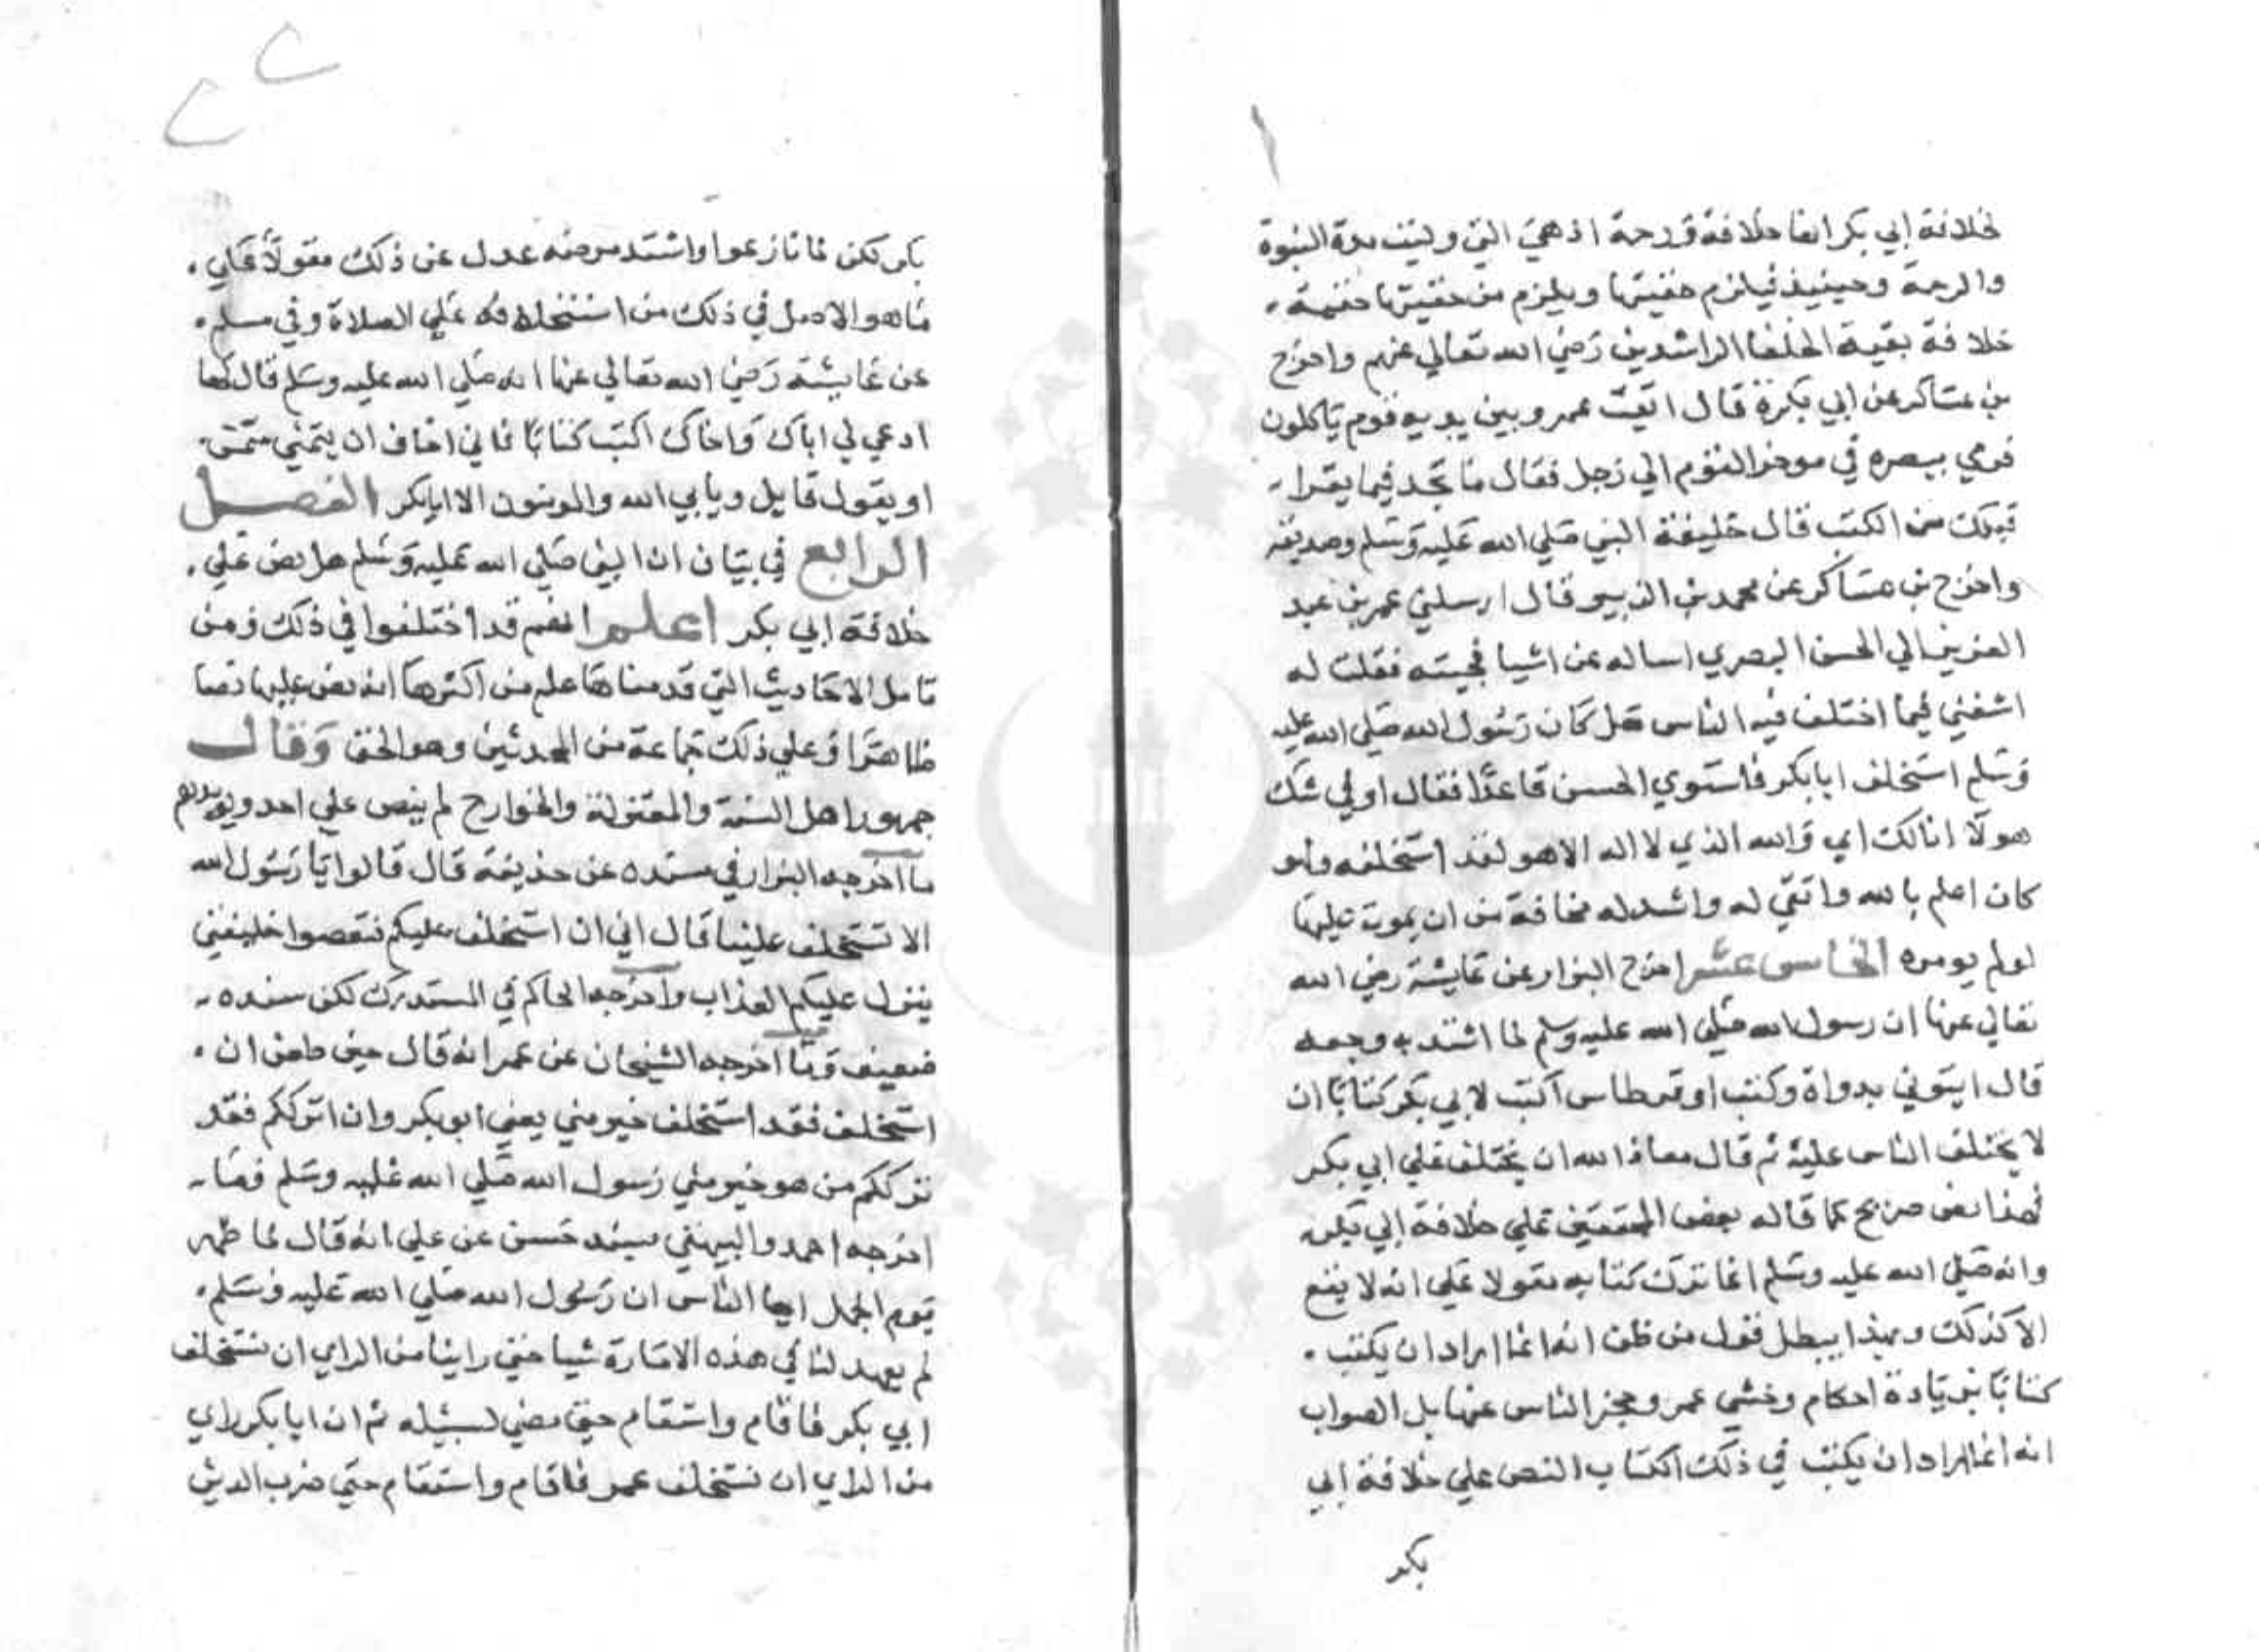 لخلافة ابي بكر انها خلافة ورحمة اذ هي التي وليت مدة النبوة
والرحمة وحينيذ فيلزم حقيتها ويلزم من حقيتها حقية
خلافة بقية الخلفا الراشدين رضي الله تعالي عنهم واخرج
بن عساكر عن ابي بكرة قال اتيت عمر وبين يديه قوم ياكلون
فرمي ببصره في موخر القوم الي رجل فقال ما تجد فيما يقرا
قبلك من الكتب قال خليفة النبي صلي الله عليه وسلم وصديقه
واخرج بن عساكر عن محمد بن الزبير قال ارسلني عمر بن عبد
العزيز الي الحسن البصري اساله عن اشيا فجيته فقلت له
اشفني فيما اختلف فيه الناس هل كان رسول الله صلي الله عليه
وسلم استخلف ابا بكر فاستوي الحسن قاعدا فقال او في شك
هولا انا لك اي والله الذي لا اله الا هو لقد استخلفه ولهو
كان اعلم بالله واتقي له واشد له مخافة من ان يموت عليها
لو لم يومره الخامس عشر اخرج البزار عن عايشة رضي الله
تعالي عنها ان رسول الله صلي الله عليه وسلم لما اشتد به وجعه
قال ايتوني بدواة وكتب او قرطاس اكتب لابي بكر كتابا ان
لا يختلف الناس عليه ثم قال معاذ الله ان يختلف علي ابي بكر
فهذا نص صريح كما قاله بعض المحققين علي خلافة ابي بكر
وانه صلي الله عليه وسلم انما ترك كتابه معولا علي انه لا يقع
الا كذلك وبهذا يبطل قول من ظن انه انما اراد ان يكتب
كتابا بزيادة احكام وخشي عمر وعجز الناس عنها بل الصواب
انه انما اراد ان يكتب في ذلك الكتاب النص علي خلافة ابي
بكر
بكر لكن لما تنازعوا واشتد مرضه عدل عن ذلك معولا علي
ما هو الاصل في ذلك من استخلافه علي الصلاة وفي مسلم
عن عايشة رضي الله تعالي عنها انه صلي الله عليه وسلم قال لها
ادعي لي اباك واخاك اكتب كتابا فاني اخاف ان يتمني متمن
او يقول قايل ويابي الله والمومنون الا ابا بكر الفصل
الرابع في بيان ان النبي صلي الله عليه وسلم هل نص علي
خلافة ابي بكر اعلم انهم قد اختلفوا في ذلك ومن
تامل الاحاديث التي قدمناها علم من اكثرها انه نص عليها نصا
ظاهرا وعلي ذلك جماعة من المحدثين وهو الحق وقال
جمهور اهل السنة والمعتزلة والخوارج لم ينص علي احد ويويدهم
ما اخرجه البزار في مسنده عن حذيفة قال قالوا يا رسول الله
الا تستخلف علينا قال اني ان استخلف عليكم فتعصوا خليفتي
ينزل عليكم العذاب واخرجه الحاكم في المستدرك لكن سنده
ضعيف وما اخرجه الشيخان عن عمر انه قال حين طعن ان
استخلف فقد استخلف خير مني يعني ابو بكر وان اترككم فقد
ترككم من هو خير مني رسول الله صلي الله عليه وسلم وما
اخرجه احمد والبيهقي بسند حسن عن علي انه قال لما ظهر
يوم الجمل ايها الناس ان رسول الله صلي الله عليه وسلم
لم يعهد لنا في هذه الامارة شيا حتي راينا من الراي ان نستخلف
ابي بكر فاقام واستقام حتي مضي لسبيله ثم ان ابا بكر راي
من الراي ان نستخلف عمر فاقام واستقام حتي ضرب الدين